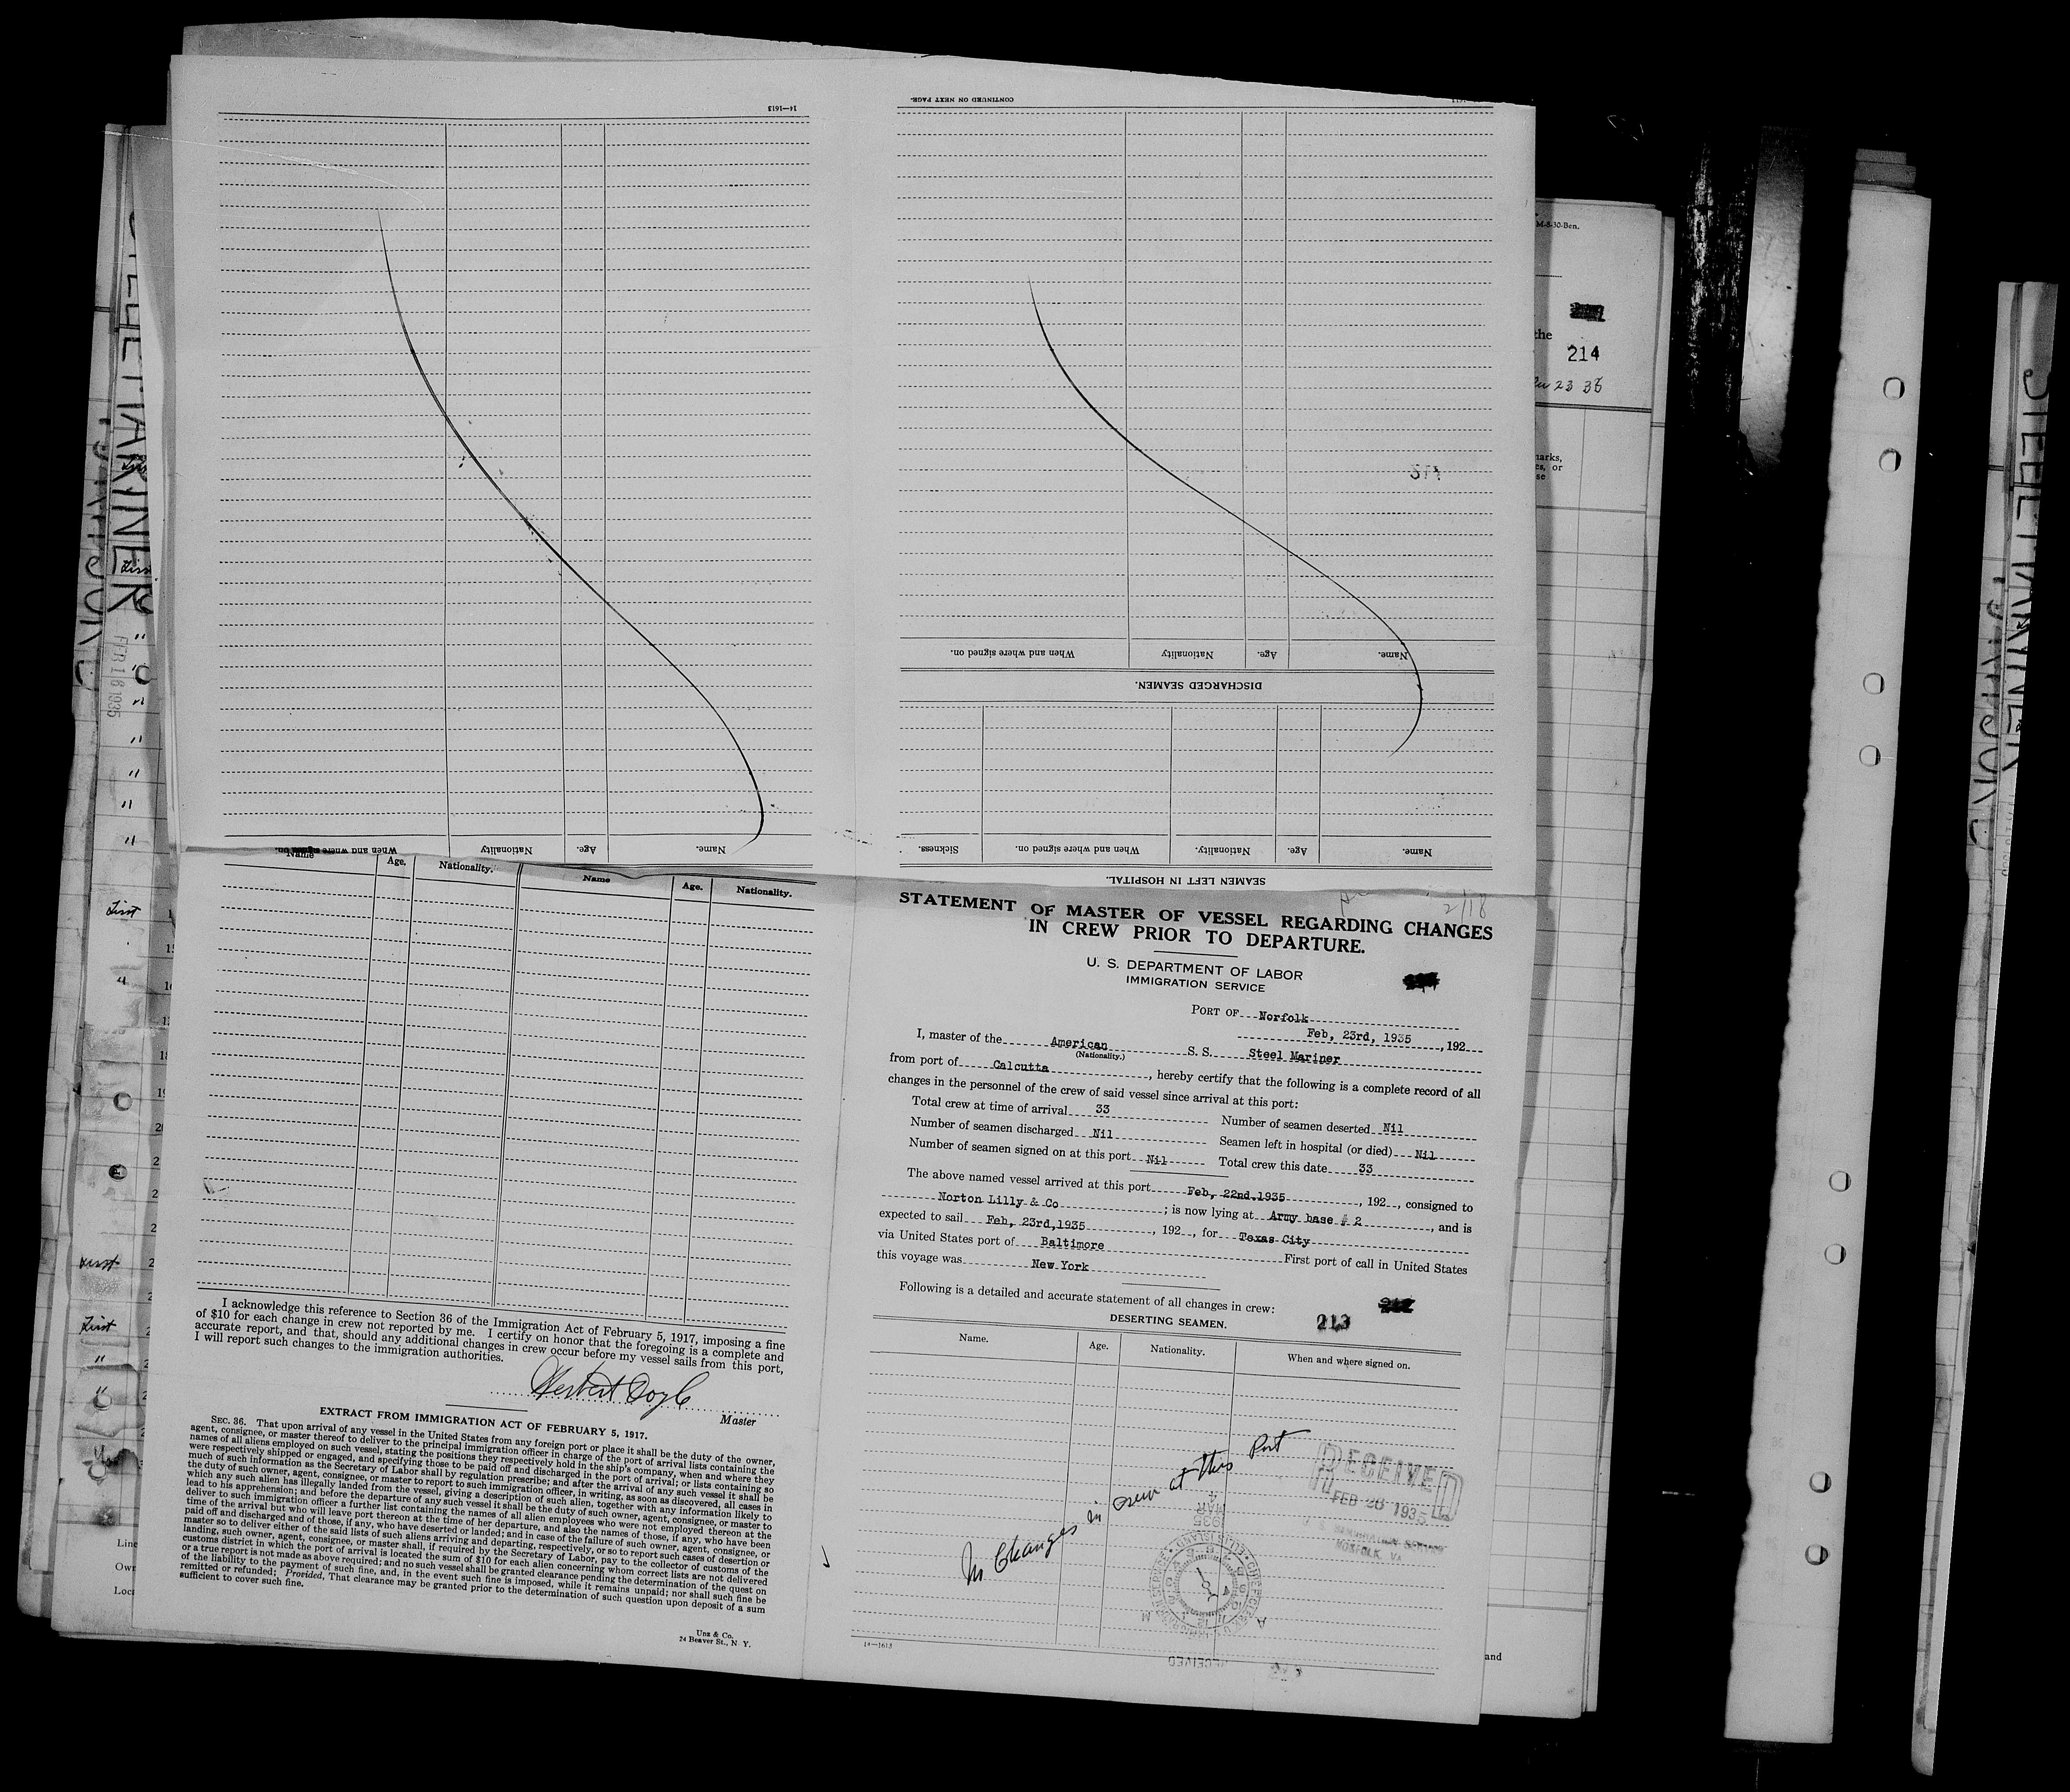 14—1613
CONTINUED ON NEXT PAGE.
When and where signed on.
Nationality
Age.
Name.
DISCHARGED SEAMEN.
Name.
Age.
Nationality
When and where signed on.
SEAMEN LEFT IN HOSPITAL.
Name.
Age.
Nationality.
When and where signed on.
Sickness.
M-5-30-Ben.
the
214
23 35
STEEL MARINER
FEB 18 1935
First
First
First
Name Age. Nationality. Name Age. Nationality.
I acknowledge this reference to Section 36 of the Immigration Act of February 5, 1917, imposing a fine
of $10 for each change in crew not reported by me. I certify on honor that the foregoing is a complete and
accurate report, and that, should any additional changes in crew occur before my vessel sails from this port,
I will report such changes to the immigration authorities.
Herbert Doyle
Master
EXTRACT FROM IMMIGRATION ACT OF FEBRUARY 5, 1917.
SEC. 36. That upon arrival of any vessel in the United States from any foreign port or place it shall be the duty of the owner,
agent, consignee, or master thereof to deliver to the principal immigration officer in charge of the port of arrival lists containing the
names of all aliens employed on such vessel, stating the positions they respectively hold in the ship's company, when and where they
were respectively shipped or engaged, and specifying those to be paid off and discharged in the port of arrival; or lists containing so
much of such information as the Secretary of Labor shall by regulation prescribe; and after the arrival of any such vessel it shall be
the duty of such owner, agent, consignee, or master to report to such immigration officer, in writing, as soon as discovered, all cases in
which any such alien has illegally landed from the vessel, giving a description of such alien, together with any information likely to
lead to his apprehension; and before the departure of any such vessel it shall be the duty of such owner, agent, consignee, or master to
deliver to such immigration officer a further list containing the names of all alien employees who were not employed thereon at the
time of the arrival but who will leave port thereon at the time of her departure, and also the names of those, if any, who have been
paid off and discharged and of those, if any, who have deserted or landed; and in case of the failure of such owner, agent, consignee, or
master so to deliver either of the said lists of such aliens arriving and departing, respectively, or so to report such cases of desertion or
landing, such owner, agent, consignee, or master shall, if required by the Secretary of Labor, pay to the collector of customs of the
customs district in which the port of arrival is located the sum of $10 for each alien concerning whom correct lists are not delivered
or a true report is not made as above required; and no such vessel shall be granted clearance pending the determination of the quest on
of the liability to the payment of such fine, and, in the event such fine is imposed, while it remains unpaid; nor shall such fine be
remitted or refunded; Provided, That clearance may be granted prior to the determination of such question upon deposit of a sum
sufficient to cover such fine.
Unz & Co.
24 Beaver St., N Y.
2/18
STATEMENT OF MASTER OF VESSEL REGARDING CHANGES
IN CREW PRIOR TO DEPARTURE.
U. S. DEPARTMENT OF LABOR
IMMIGRATION SERVICE
PORT OF Norfolk
Feb, 23rd, 1935, 192
I, master of the American S. S. Steel Mariner
(Nationality.)
from port of Calcutta, hereby certify that the following is a complete record of all
changes in the personnel of the crew of said vessel since arrival at this port:
Total crew at time of arrival 33 Number of seamen deserted Nil
Number of seamen discharged Nil Seamen left in hospital (or died) Nil
Number of seamen signed on at this port Nil Total crew this date 33
The above named vessel arrived at this port Feb, 22nd.1935, 192 , consigned to
Norton Lilly & Co ; is now lying at Army base # 2, and is
expected to sail Feb, 23rd,1935, 192 , for Texas City
via United States port of Baltimore First port of call in United States
this voyage was New York
Following is a detailed and accurate statement of all changes in crew:
213
DESERTING SEAMEN.
Name. Age. Nationality. When and where signed on.
No Changes in crew at this Port
RECEIVED
FEB 26 1935
U. S. IMMIGRATION SERVICE
NORFOLK, VA
1935
MAR
4
RECEIVED
14—1613
and